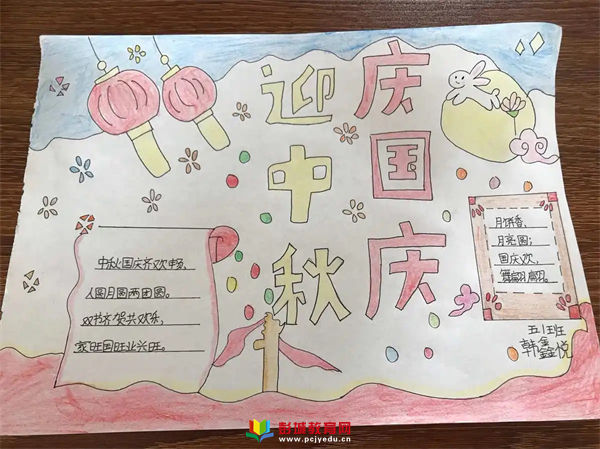 庆国庆
迎中秋
中秋国庆齐欢畅，
人圆月圆两团圆。
双节齐贺共欢乐，
家旺国旺业兴旺。
月饼香，
月亮圆；
国庆欢，
舞翩翩。
五1班
韩鑫悦
彭城教育网
www.pcjyedu.cn